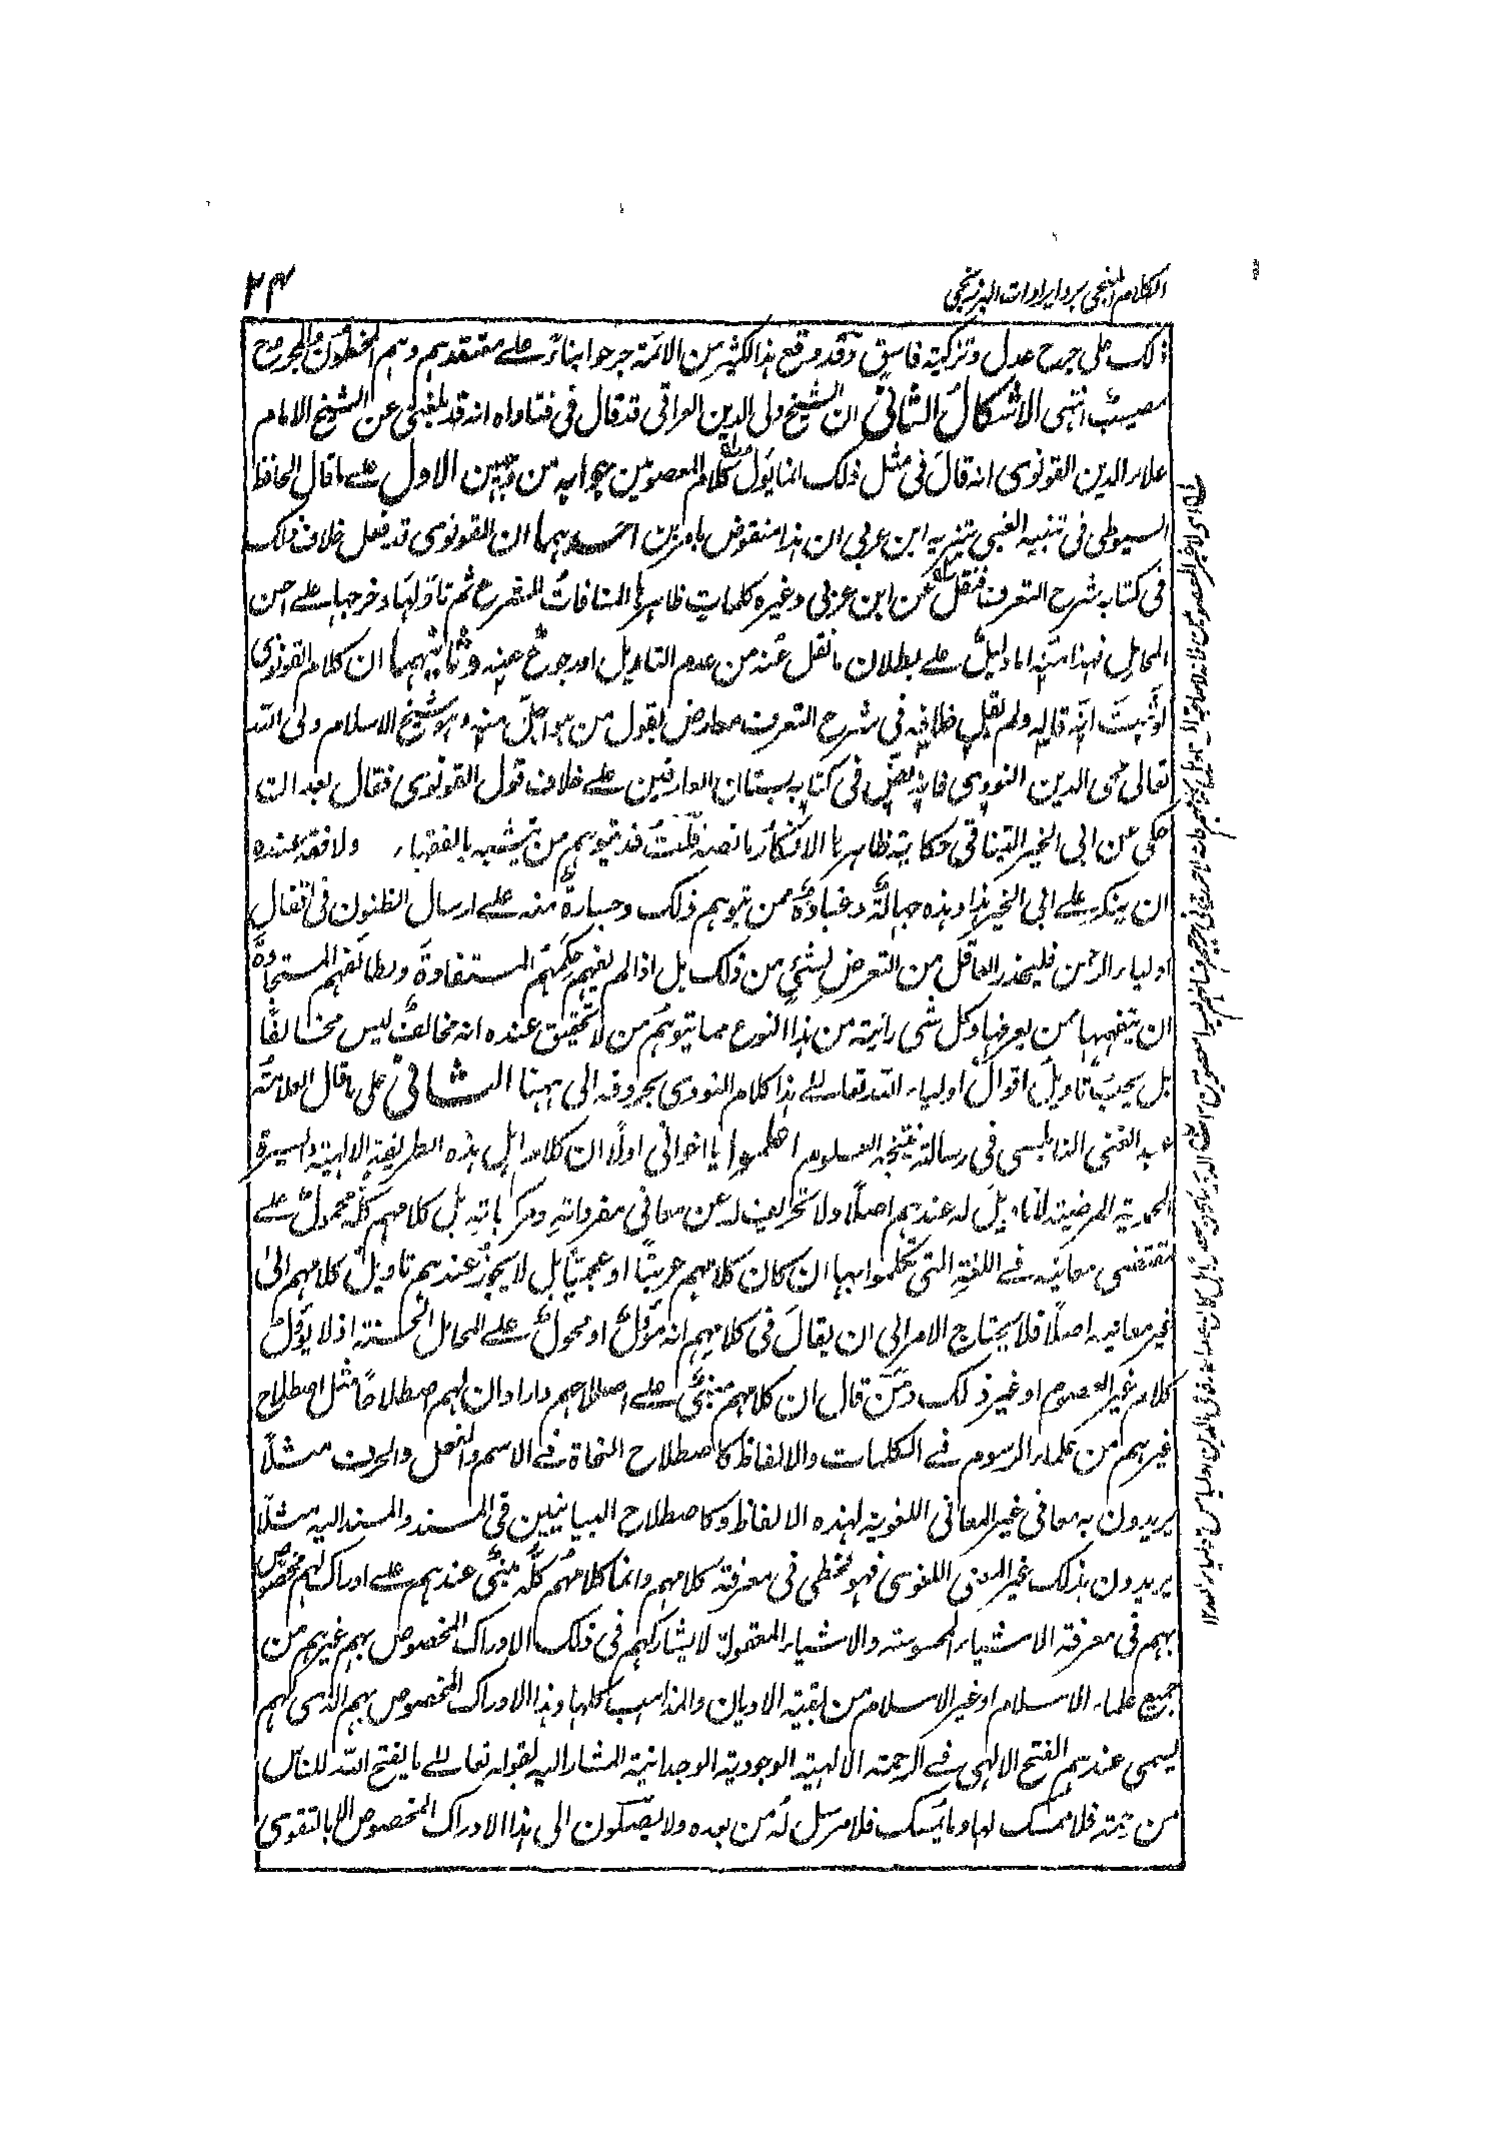 الكلام المنجي برد ايرادات البرزنجي
٢٤
ذلك على جرح عدل وتزكية فاسق وقد وقع هذا لكثير من الائمة جرحوا بناءً على معتقدهم وهم المخطئون والمجروح
مصيب انتهى الاشكال الثاني ان الشيخ ولى الدين العراقي قد قال فى فتاواه انه قد بلغنى عن الشيخ الامام
علاء الدين القونوى انه قال فى مثل ذلك انما يؤل كلام المعصومين جوابه من وجهين الاول على ما قال الحافظ
السيوطى فى تنبيه الغبى بتنزيه ابن عربى ان هذا منقوض بامرين احدهما ان القونوى قد فعل خلاف ذلك
فى كتابه شرح التعرف فنقل عن ابن عربى وغيره كلمات ظاهرها المنافاة للشرع ثم تاولها وخرجها على احسن
المحامل فهذا منه اما دليل على بطلان ما نقل عنه من عدم التاويل او رجوع عنه وثانيهما ان كلام القونوى
لو ثبت انه قاله ولم يقل خلافه فى شرح التعرف معارض بقول من هو اجل منه وهو شيخ الاسلام ولى الله
تعالى محى الدين النووى فانه نص فى كتابه بستان العارفين على خلاف قول القونوى فقال بعد ان
حكى عن ابى الخير التيناتى حكاية ظاهرها الانكار ما نصه قلت قد يتوهم من يتشبه بالفقهاء ولا فقه عنده
ان ينكر على ابى الخير هذا وهذه جهالة وغباوة ممن يتوهم ذلك وجسارة منه على ارسال الظنون فى افعال
اولياء الرحمن فليحذر العاقل من التعرض لشئ من ذلك بل اذا لم يفهم حكمهم المستفادة ولطائفهم المستجادة
ان يتفهمها ممن يعرفها وكل شى رايته من هذا النوع مما يتوهم من لا تحقيق عنده انه مخالف ليس مخالفًا
بل يجب تاويل اقوال اولياء الله تعالى هذا كلام النووى بحروفه الى ههنا الثانى على ما قال العلامة
عبد الغنى النابلسى فى رسالته نتيجة العلوم اعلموا يا اخوانى اولًا ان كلام اهل هذه الطريقة الالهية والسيرة
المحمدية المرضية لا تاويل له عندهم اصلًا ولا تحريف له عن معانى مفرداته ومركباته بل كلامهم كله محمول على
مقتضى معانيه فى اللغة التى تكلموا بها ان كان كلامهم عربيًا او عجميًا بل لا يجوز عندهم تاويل كلامهم الى
غير معانيه اصلًا فلا يحتاج الامر الى ان يقال فى كلامهم انه مؤل او محمول على المحامل الحسنة اذ لا يؤل
كلام غير المعصوم او غير ذلك ومن قال ان كلامهم مبنى على اصطلاحهم واراد ان لهم اصطلاحًا مثل اصطلاح
غيرهم من علماء الرسوم فى الكلمات والالفاظ كاصطلاح النحاة فى الاسم والفعل والحرف مثلًا
يريدون به معانى غير المعانى اللغوية لهذه الالفاظ وكاصطلاح البيانيين فى المسند والمسند اليه مثلًا
يريدون بذلك غير المعنى اللغوى فهو مخطى فى معرفة كلامهم وانما كلامهم كله مبنى عندهم على ادراك لهم مخصوص
بهم فى معرفة الاشياء المحسوسة والاشياء المعقولة لا يشاركهم فى ذلك الادراك المخصوص بهم غيرهم من
جميع علماء الاسلام او غير الاسلام من بقية الاديان والمذاهب كلها وهذا الادراك المخصوص بهم الذى لهم
يسمى عندهم الفتح الالهى فى الرحمة الالهية الوجودية الوجدانية المشار اليه لقوله تعالى ما يفتح الله للناس
من رحمة فلا ممسك لها وما يمسك فلا مرسل له من بعده ولا يصلون الى هذا الادراك المخصوص الا بالتقوى